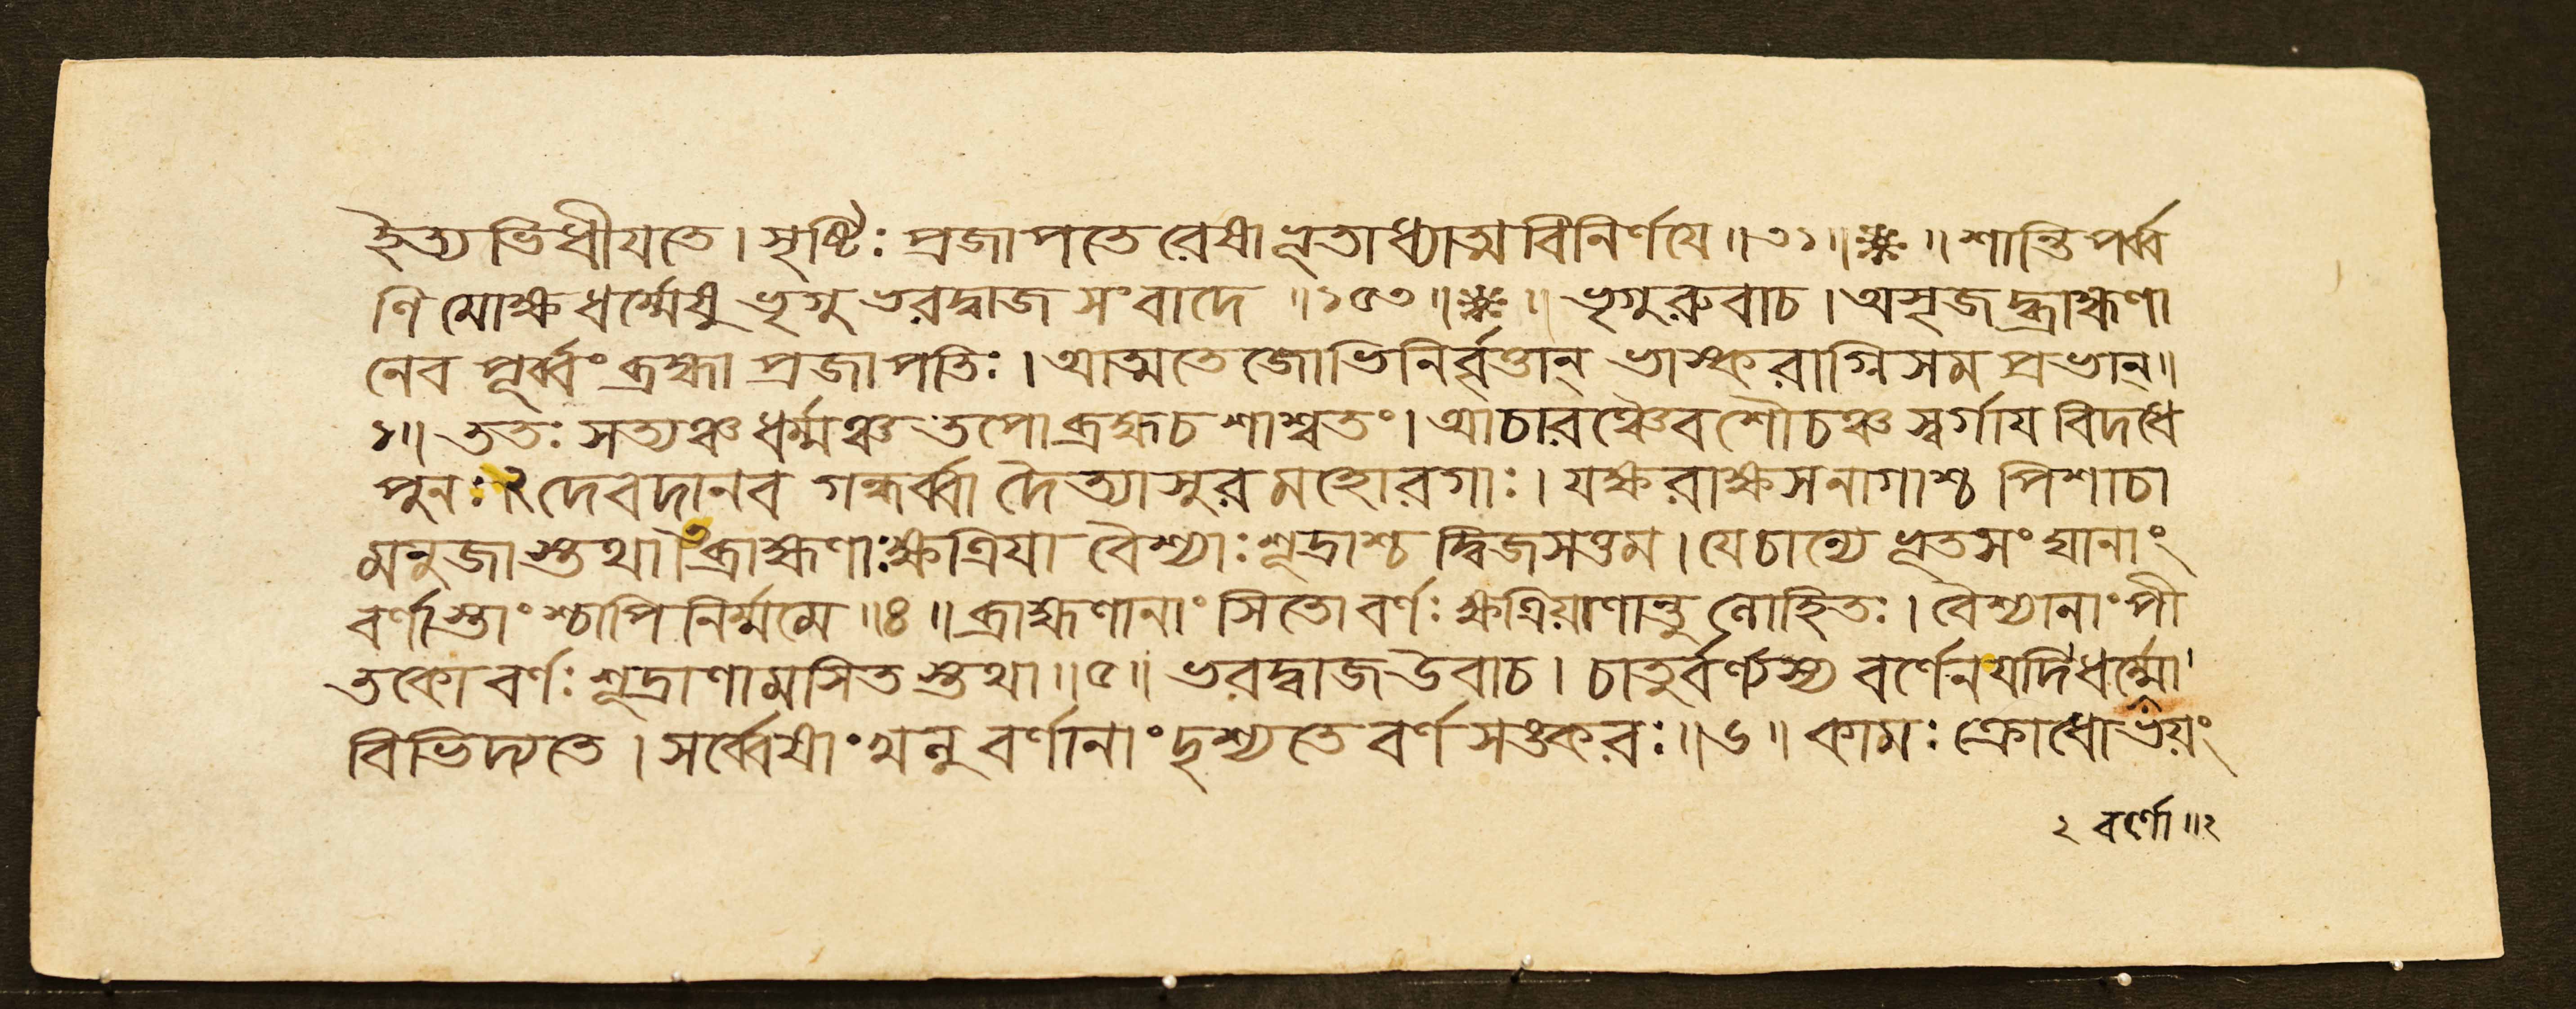 ইত্যভিধীয়তে । সৃষ্টিঃ প্রজাপতেরেষা ভূতাধ্যাত্মবিনির্ণয়ে ॥ ৩১ ॥ ※ ॥ শান্তিপর্ব্ব
ণি মোক্ষধর্ম্মেষু ভৃগুভরদ্বাজ সংবাদে ॥ ১৫৩ ॥ ※ ॥ ভৃগুরুবাচ । অসৃজদ্ব্রাহ্মণা
নেব পূর্ব্বং ব্রহ্মা প্রজাপতিঃ । আত্মতেজোভিনির্বৃত্তান্ ভাস্করাগ্নিসমপ্রভান্ ॥
১ ॥ ততঃ সত্যঞ্চ ধর্ম্মঞ্চ তপো ব্রহ্মচ শাশ্বতং । আচারঞ্চৈব শৌচঞ্চ স্বর্গায় বিদধে
পুনঃ । ২ দেবদানব গন্ধর্ব্বা দৈত্যাসুর মহোরগাঃ । যক্ষরাক্ষসনাগাশ্চ পিশাচা
মনুজাস্তথা । ব্রাহ্মণাঃ ক্ষত্রিয়া বৈশ্যাঃ শূদ্রাশ্চ দ্বিজসত্তম । যেচান্যে ভূতসংঘানাং
বর্ণাস্তাংশ্চাপি নির্ম্মমে ॥ ৪ ॥ ব্রাহ্মণানাং সিতো বর্ণঃ ক্ষত্রিয়াণান্তু লোহিতঃ । বৈশ্যানাং পী
তকো বর্ণঃ শূদ্রাণামসিতস্তথা ॥ ৫ ॥ ভরদ্বাজ উবাচ । চাতুর্বর্ণ্যস্য বর্ণেন যদি ধর্ম্মো
বিভিদ্যতে । সর্ব্বেষাং খনু বর্ণানাং দৃশ্যতে বর্ণসঙ্করঃ ॥ ৬ ॥ কামঃ ক্রোধো ভয়ং
২ বর্ণো ॥ ২